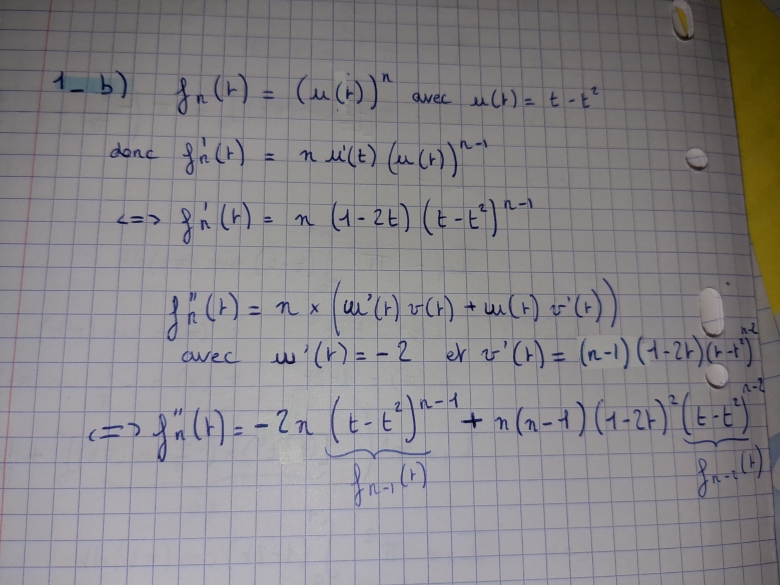 1_ b) fₙ(t) = (u(t))ⁿ avec u(t) = t - t²
donc fₙ'(t) = n u'(t) (u(t))ⁿ⁻¹
<=> fₙ'(t) = n (1-2t) (t-t²)ⁿ⁻¹
fₙ''(t) = n × (w'(t) v(t) + w(t) v'(t))
avec w'(t) = -2 et v'(t) = (n-1)(1-2t)(t-t²)ⁿ⁻²
<=> fₙ''(t) = -2n (t-t²)ⁿ⁻¹ + n(n-1)(1-2t)²(t-t²)ⁿ⁻²
fₙ₋₁(t) fₙ₋₂(t)